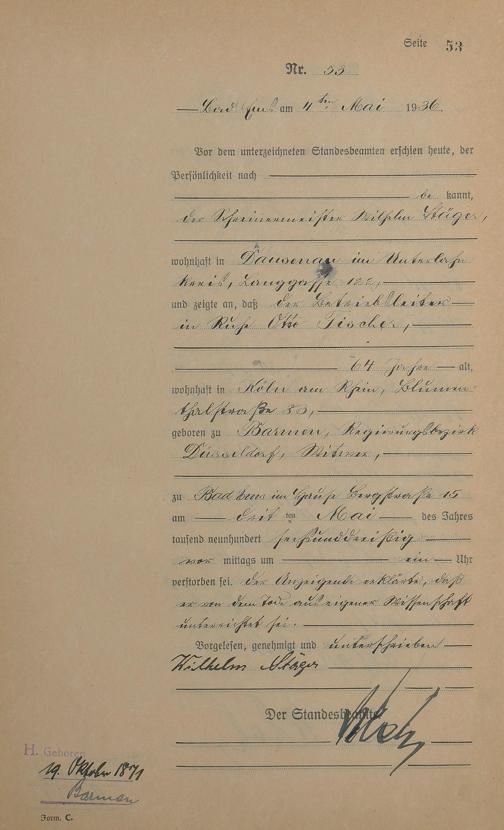 Seite 53
Nr. 53
Bad Ems am 4ten Mai 1936.
Vor dem unterzeichneten Standesbeamten erschien heute, der
Persönlichkeit nach
be kannt,
der Schreinermeister Wilhelm Stäger,
wohnhaft in Dausenau im Unterlahn
kreis, Langgasse 122,
und zeigte an, daß der Betriebsleiter
in Ruhe Otto Fischer,
64 Jahre alt,
wohnhaft in Köln am Rhein, Blumen
thalstraße
geboren zu Barmen, Regierungsbezirk
Düsseldorf, Witwer,
zu Bad Ems im Hause Bergstraße 15
am dritten Mai des Jahres
tausend neunhundert sechsunddreißig
vor mittags um ein Uhr
verstorben sei. Der Anzeigende erklärte, daß
er von dem Tode aus eigener Wissenschaft
unterrichtet sei.
Vorgelesen, genehmigt und unterschrieben
Wilhelm Stäger
Der Standesbeamte.
H. Geboren
19. Oktober 1871
Barmen
Form. C.